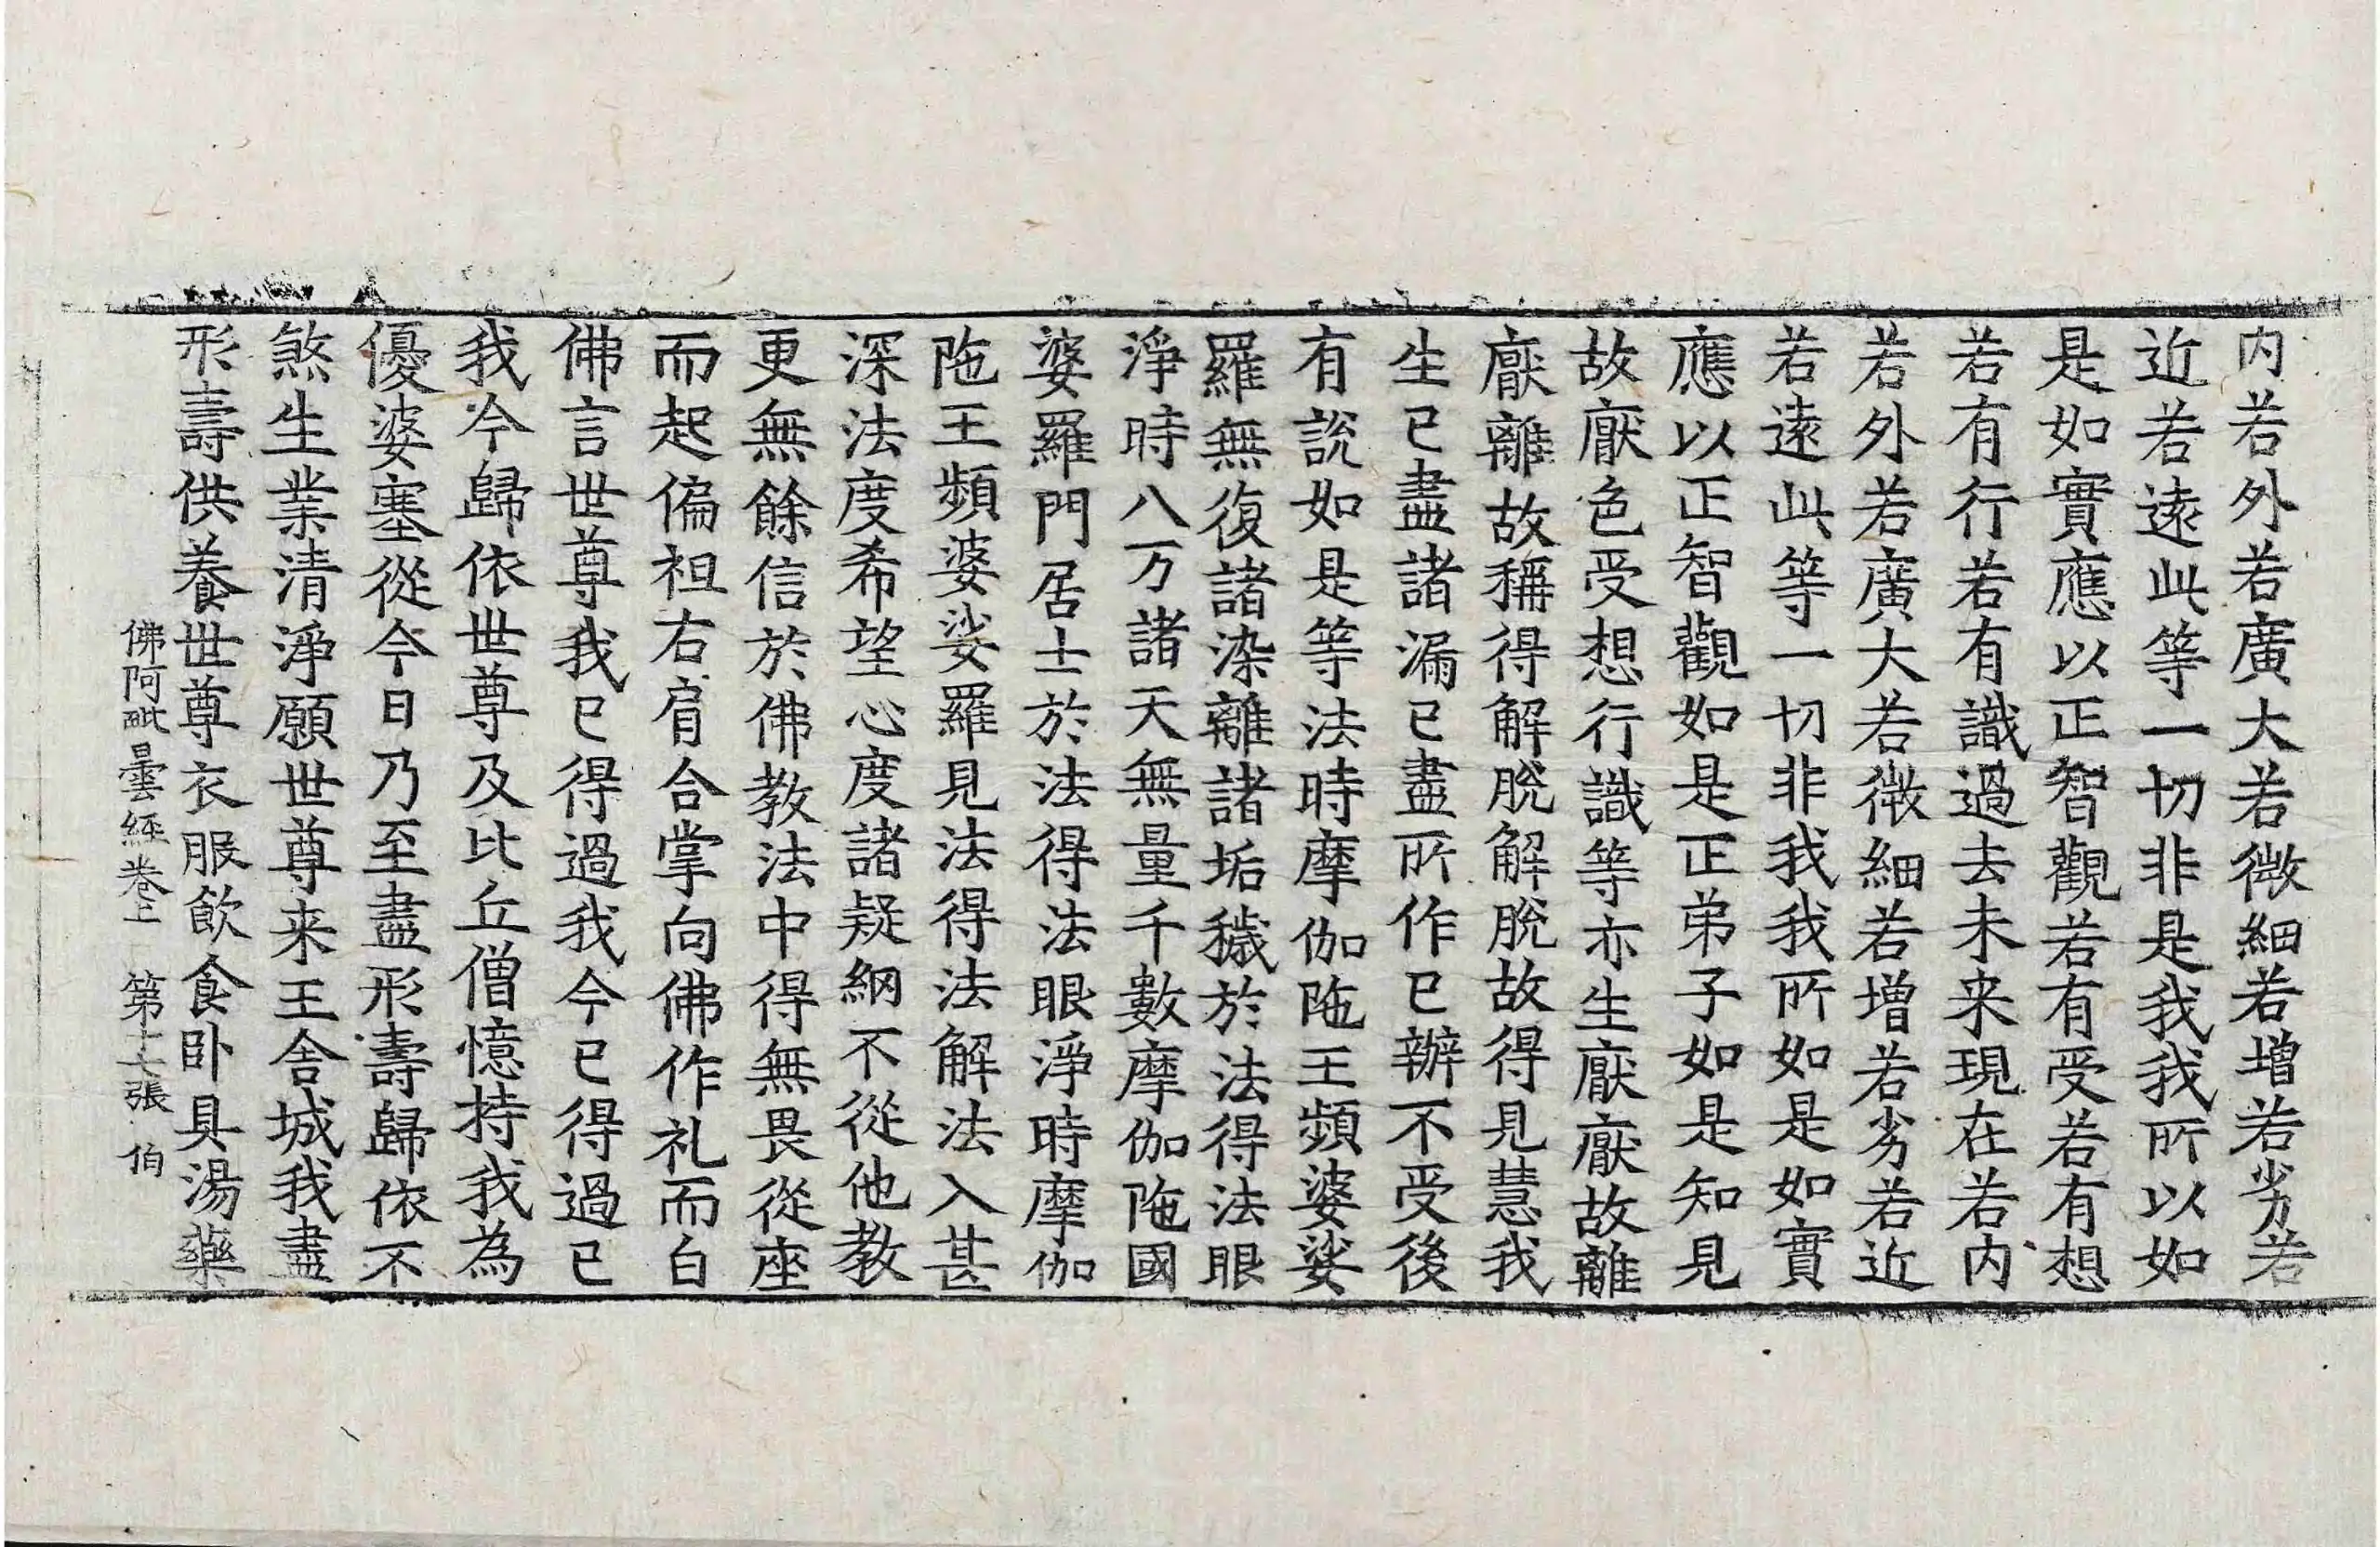 内若外若廣大若微細若增若劣若
近若遠此等一切非是我我所以如
是如實應以正智觀若有受若有想
若有行若有識過去未来現在若内
若外若廣大若微細若增若劣若近
若遠此等一切非我我所如是如實
應以正智觀如是正弟子如是知見
故厭色受想行識等亦生厭厭故離
厭離故稱得解脫解脫故得見慧我
生已盡諸漏已盡所作已辦不受後
有說如是等法時摩伽陁王頻婆娑
羅無復諸染離諸垢穢於法得法眼
淨時八万諸天無量千數摩伽陁國
婆羅門居士於法得法眼淨時摩伽
陁王頻婆娑羅見法得法解法入甚
深法度希望心度諸疑網不從他教
更無餘信於佛教法中得無畏從座
而起偏袒右肩合掌向佛作礼而白
佛言世尊我已得過我今已得過已
我今歸依世尊及比丘僧憶持我為
優婆塞從今日乃至盡形壽歸依不
煞生業清淨願世尊来王舍城我盡
形壽供養世尊衣服飲食卧具湯藥
佛阿毗曇經卷上 第十七張 伯